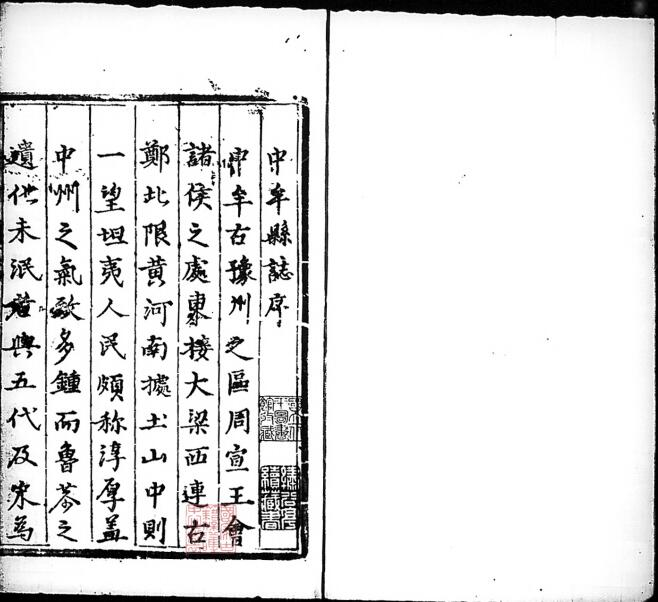 中牟縣誌序
中牟古豫州之區周宣王會
諸侯之處東接大梁西連古
鄭北限黃河南據土山中則
一望坦夷人民頗称淳厚盖
中州之氣歟多鍾而魯恭之
遺化未泯萑與五代及宋為